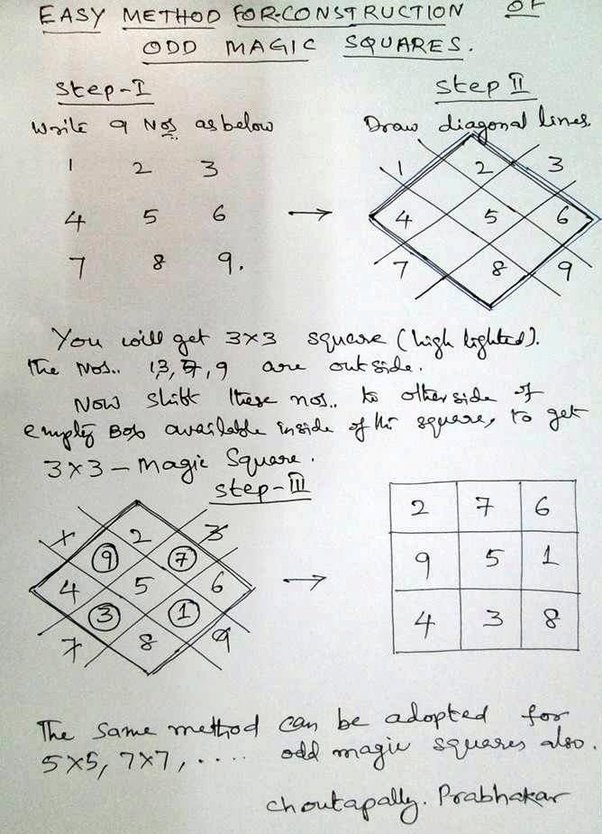 EASY METHOD FOR CONSTRUCTION OF
ODD MAGIC SQUARES.
Step-I
Write 9 Nos as below
1 2 3
4 5 6
7 8 9.
Step II
Draw diagonal lines
1 2 3
4 5 6
7 8 9
You will get 3×3 square (high lighted).
The Nos.. 1,3, 7, 9 are outside.
Now shift these nos.. to other side of
empty Box available inside of the square, to get
3×3 – Magic Square.
Step-III
1 2 3
9 7
4 5 6
3 1
7 8 9
2 7 6
9 5 1
4 3 8
The same method can be adopted for
5×5, 7×7, .... odd magic squares also.
Choutapally. Prabhakar